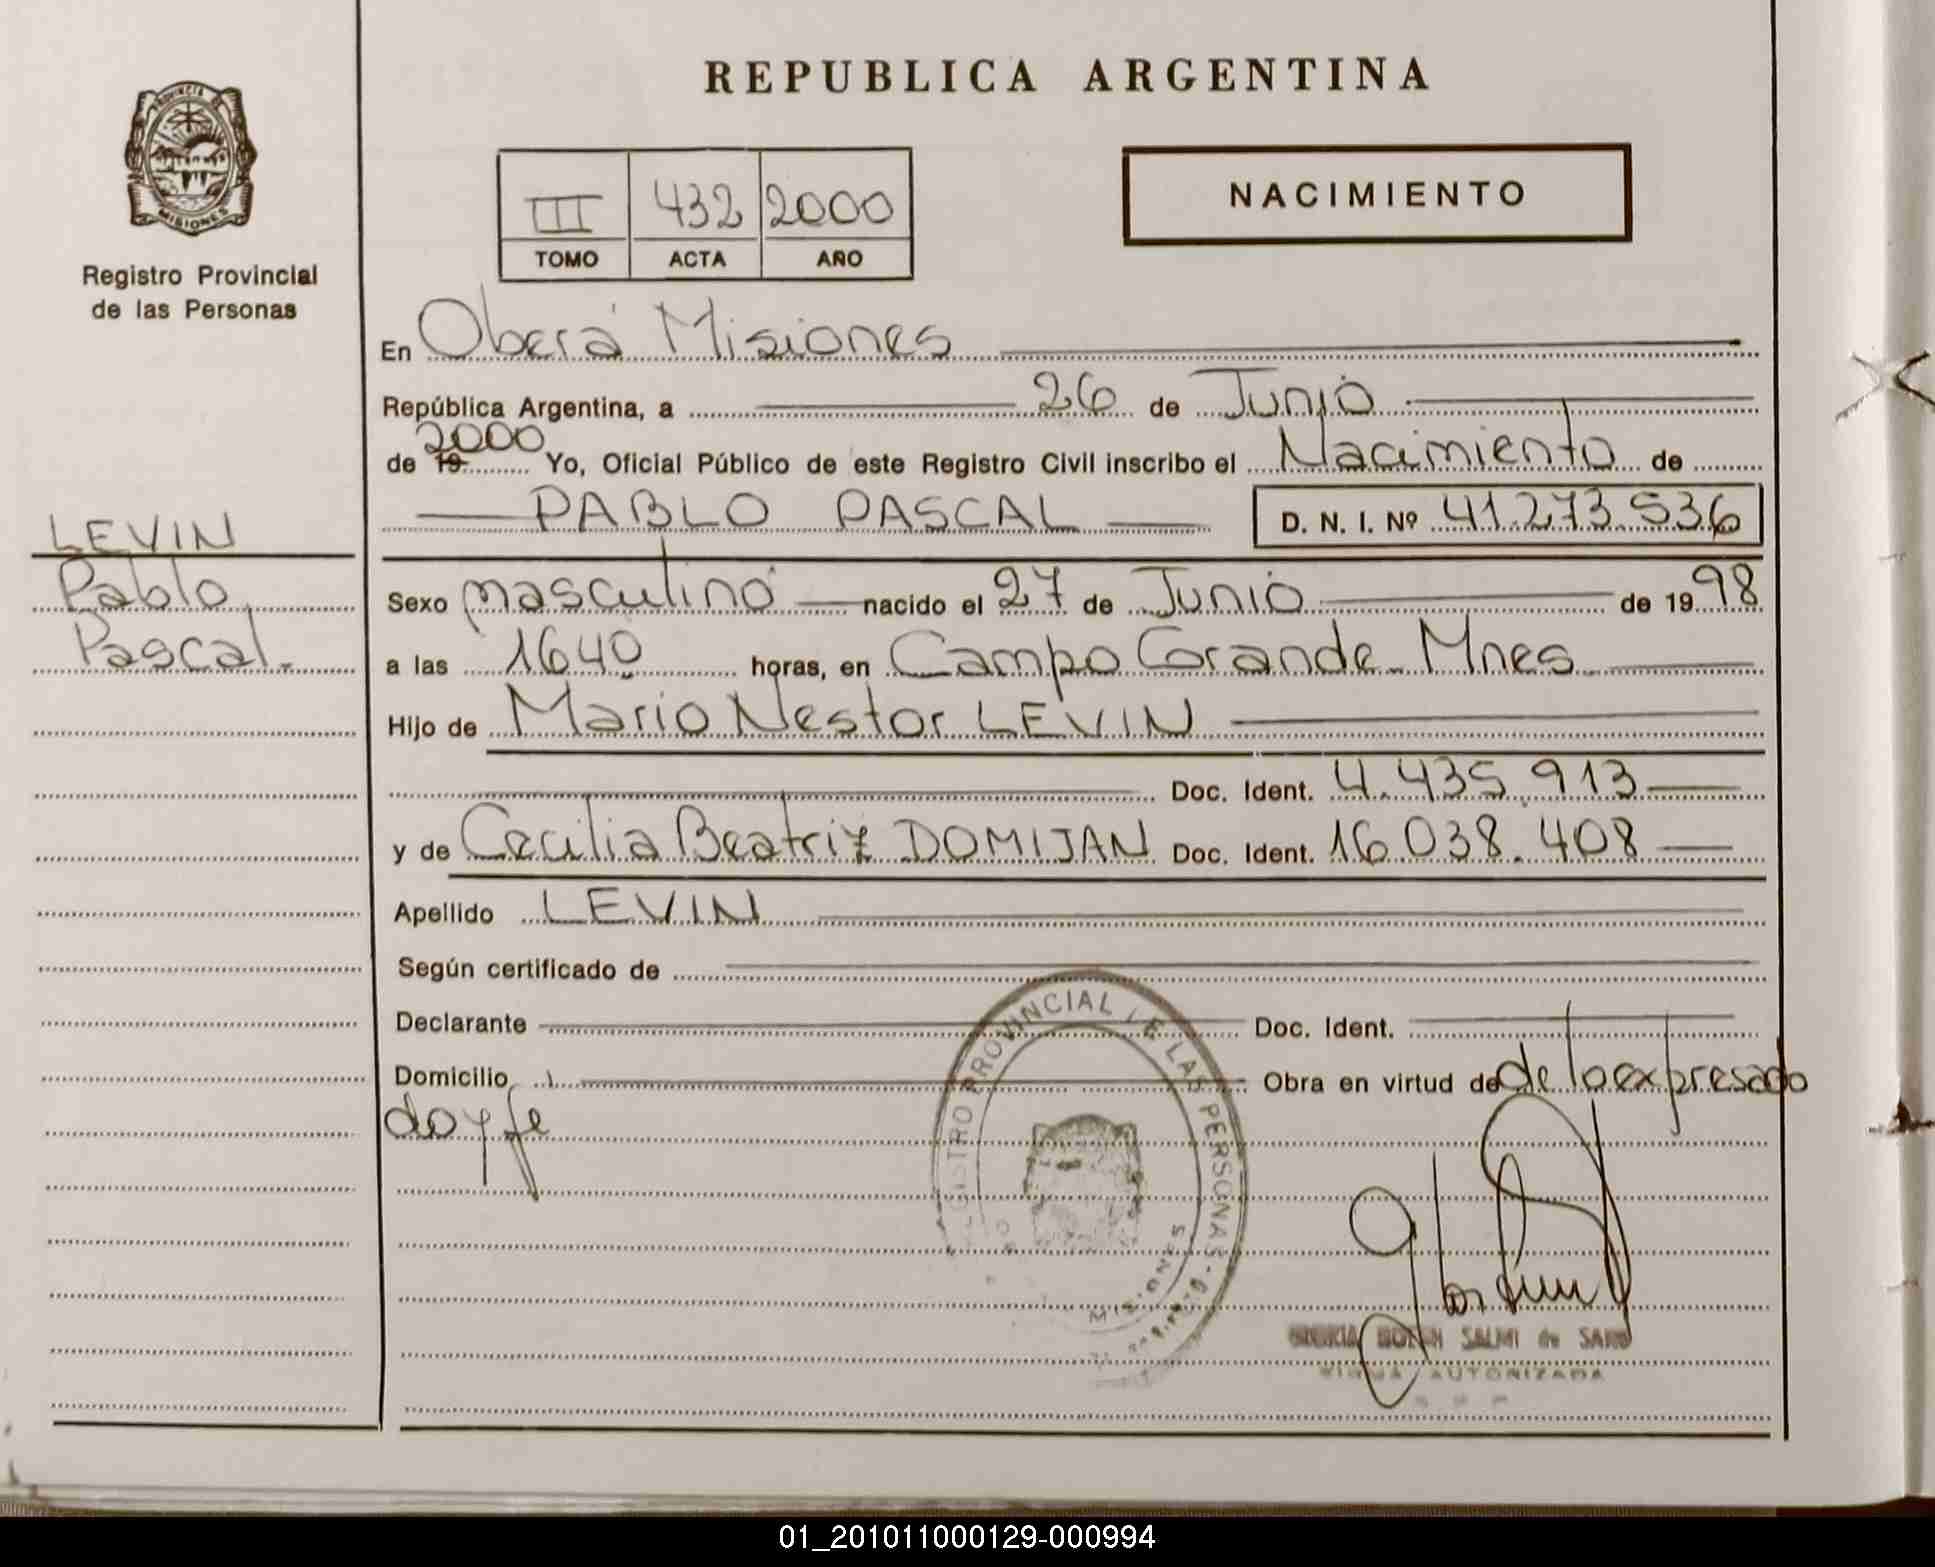 REPUBLICA ARGENTINA
PROVINCIA DE
MISIONES
Registro Provincial
de las Personas
III 432 2000
TOMO ACTA AÑO
NACIMIENTO
En Oberá Misiones
República Argentina, a 26 de Junio
de 19 2000 Yo, Oficial Público de este Registro Civil inscribo el Nacimiento de
PABLO PASCAL D. N. I. Nº 41.273.536
LEVIN
Pablo
Pascal.
Sexo masculino nacido el 27 de Junio de 19 98
a las 1640 horas, en Campo Grande Mnes
Hijo de Mario Nestor LEVIN
Doc. Ident. 4.435.913
y de Cecilia Beatriz DOMIJAN Doc. Ident. 16.038.408
Apellido LEVIN
Según certificado de
Declarante Doc. Ident.
Domicilio Obra en virtud de de lo expresado
doy fe
REGISTRO PROVINCIAL DE LAS PERSONAS
MISIONES
SALMI de
FIRMA AUTORIZADA
01_201011000129-000994